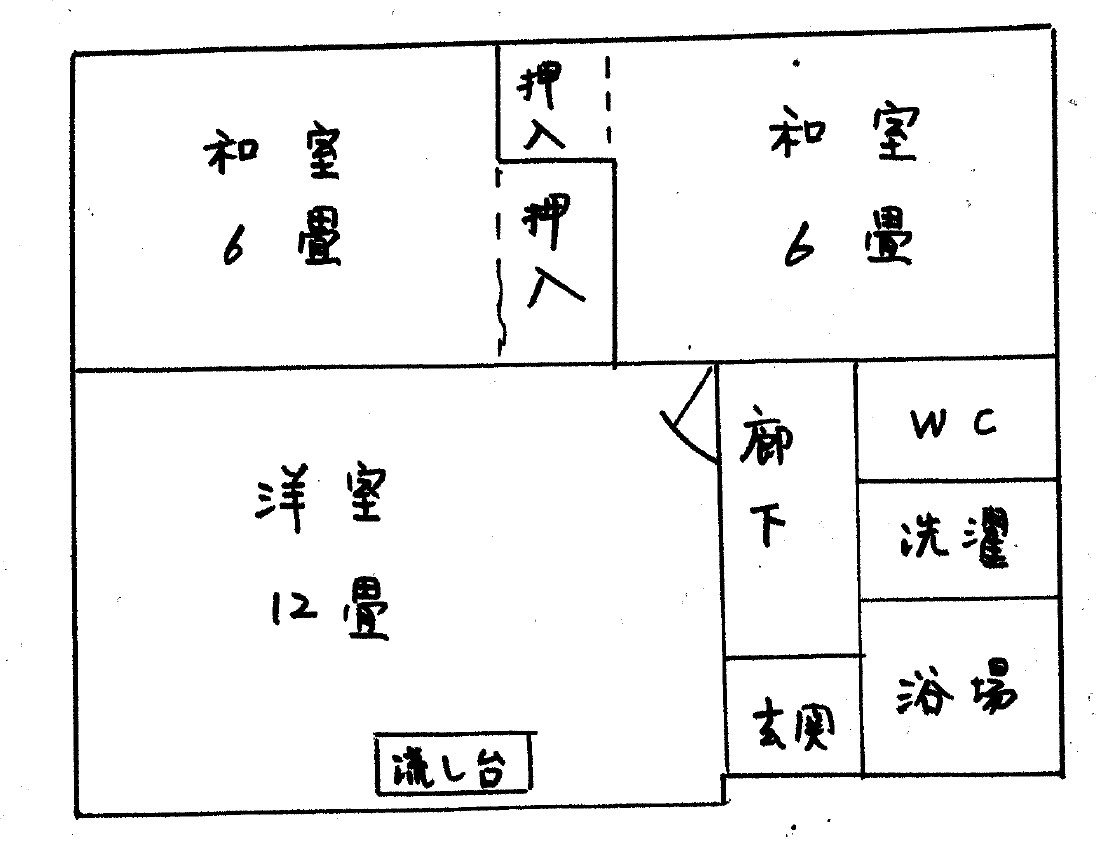 和室
6畳
押入
押入
和室
6畳
洋室
12畳
流し台
廊下
玄関
WC
洗濯
浴場